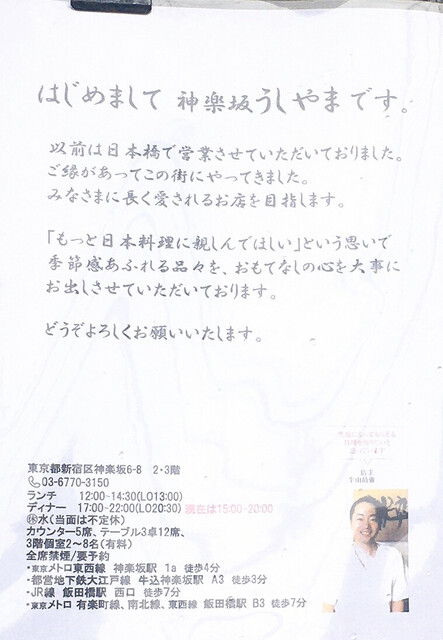 はじめまして 神楽坂うしやま です。
以前は日本橋で営業させていただいておりました。
ご縁があってこの街にやってきました。
みなさまに長く愛されるお店を目指します。
「もっと日本料理に親しんでほしい」という思いで
季節感あふれる品々を、おもてなしの心を大事に
お出しさせていただいております。
どうぞよろしくお願いいたします。
東京都新宿区神楽坂6-8 2・3階
03-6770-3150
ランチ 12:00~14:30(LO13:00)
ディナー 17:00~22:00(LO20:30) 現在は15:00~20:00
㊡水(当面は不定休)
カウンター5席、テーブル3卓12席、
3階個室2~8名(有料)
全席禁煙/要予約
・東京メトロ東西線 神楽坂駅 1a 徒歩4分
・都営地下鉄大江戸線 牛込神楽坂駅 A3 徒歩3分
・JR線 飯田橋駅 西口 徒歩7分
・東京メトロ 有楽町線、南北線、東西線 飯田橋駅 B3 徒歩7分
店主